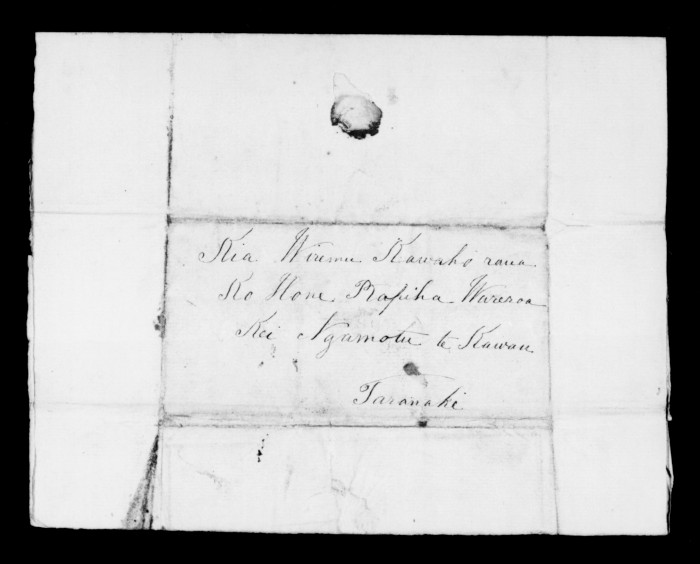 Kia Wiremu Kawaho raua
Ko Hone Ropiha Wareroa
Kei Ngamotu te Kawau
Taranaki